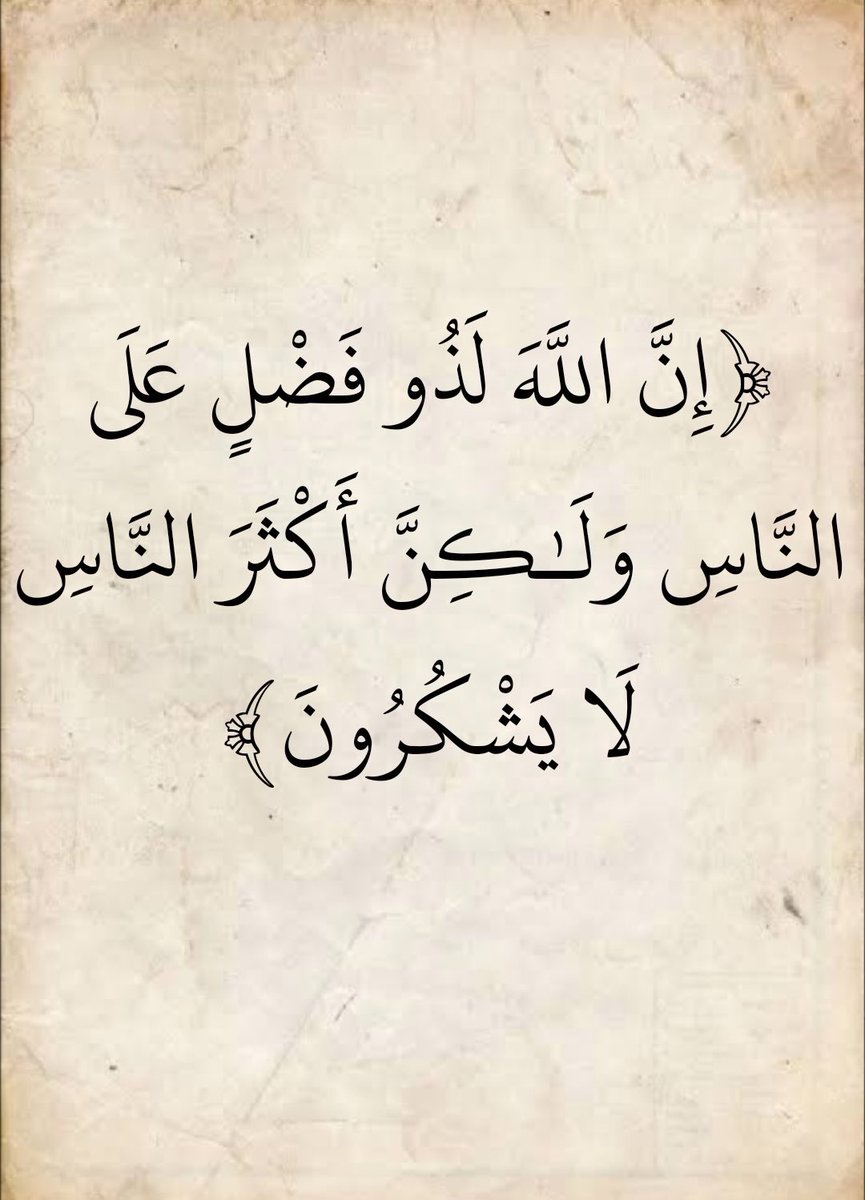 ﴿إِنَّ اللَّهَ لَذُو فَضْلٍ عَلَى
النَّاسِ وَلَـٰكِنَّ أَكْثَرَ النَّاسِ
لَا يَشْكُرُونَ﴾